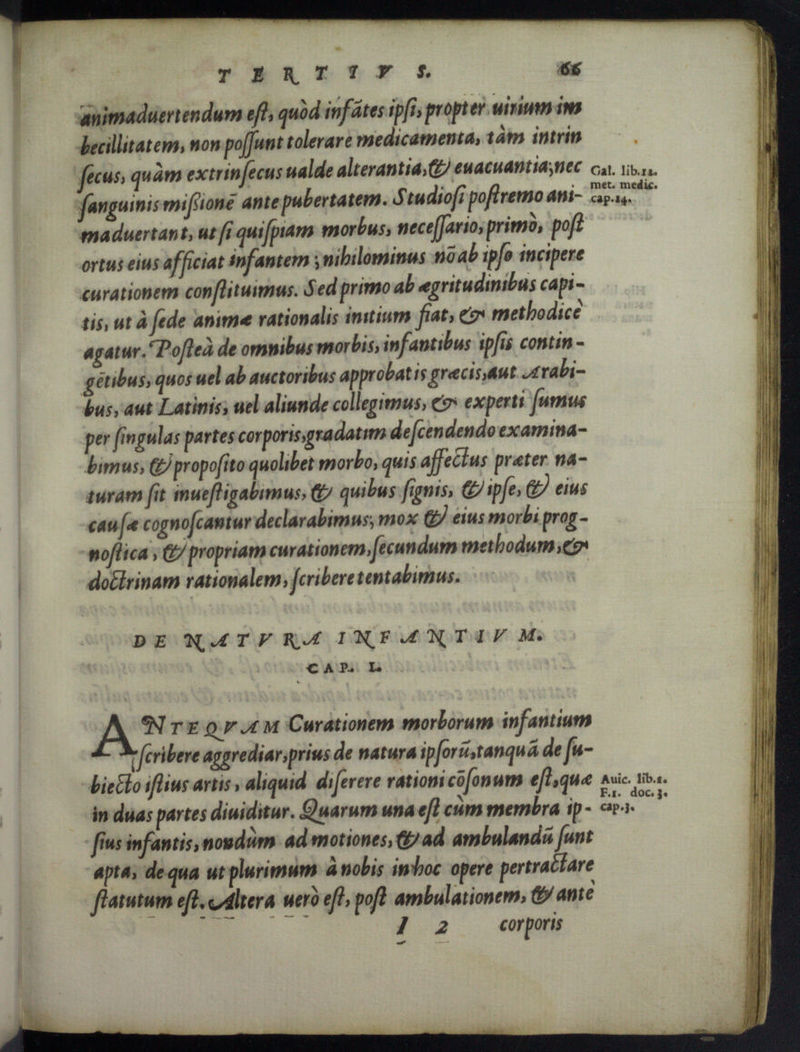 TERTIVS. 66
animaduertendum eſt, quòd infātes ipſi, propter uirium im
becillitatem, non poſſunt tolerare medicamenta, tàm intrin
ſecus, quàm extrinſecus ualde alterantia, & euacuantia; nec
Gal. lib.11.
ſanguinis miſsionē ante pubertatem. Studioſi poſtremo ani-
met. medic.
cap.14.
maduertant, ut ſi quiſpiam morbus, neceſſario, primò, poſt
ortus eius afficiat infantem; nihilominus nō ab ipſo incipere
curationem conſtituimus. Sed primo ab ægritudinibus capi-
tis, ut à ſede animæ rationalis initium fiat, & methodicè
agatur. Poſteà de omnibus morbis, infantibus ipſis contin-
gētibus, quos uel ab auctoribus approbatis græcis, aut Arabi-
bus, aut Latinis, uel aliunde collegimus, & experti ſumus
per ſingulas partes corporis, gradatim deſcendendo examina-
bimus, & propoſito quolibet morbo, quis affectus præter na-
turam ſit inueſtigabimus, & quibus ſignis, & ipſe, & eius
cauſæ cognoſcantur declarabimus; mox & eius morbi prog-
noſtica, & propriam curationem, ſecundum methodum, &
doctrinam rationalem, ſcribere tentabimus.
DE NATVRA INFANTIVM.
CAP. I.
ANTEQVAM Curationem morborum infantium
ſcribere aggrediar, prius de natura ipſorū, tanquā de ſu-
biecto iſtius artis, aliquid diſerere rationi cōſonum eſt, quæ
Auic. lib.1.
F.1. doc.3.
in duas partes diuiditur. Quarum una eſt cùm membra ip-
cap.3.
ſius infantis, nondùm ad motiones, & ad ambulandū ſunt
apta, de qua ut plurimùm à nobis in hoc opere pertractare
ſtatutum eſt. Altera uerò eſt, poſt ambulationem, & antè
I 2 corporis